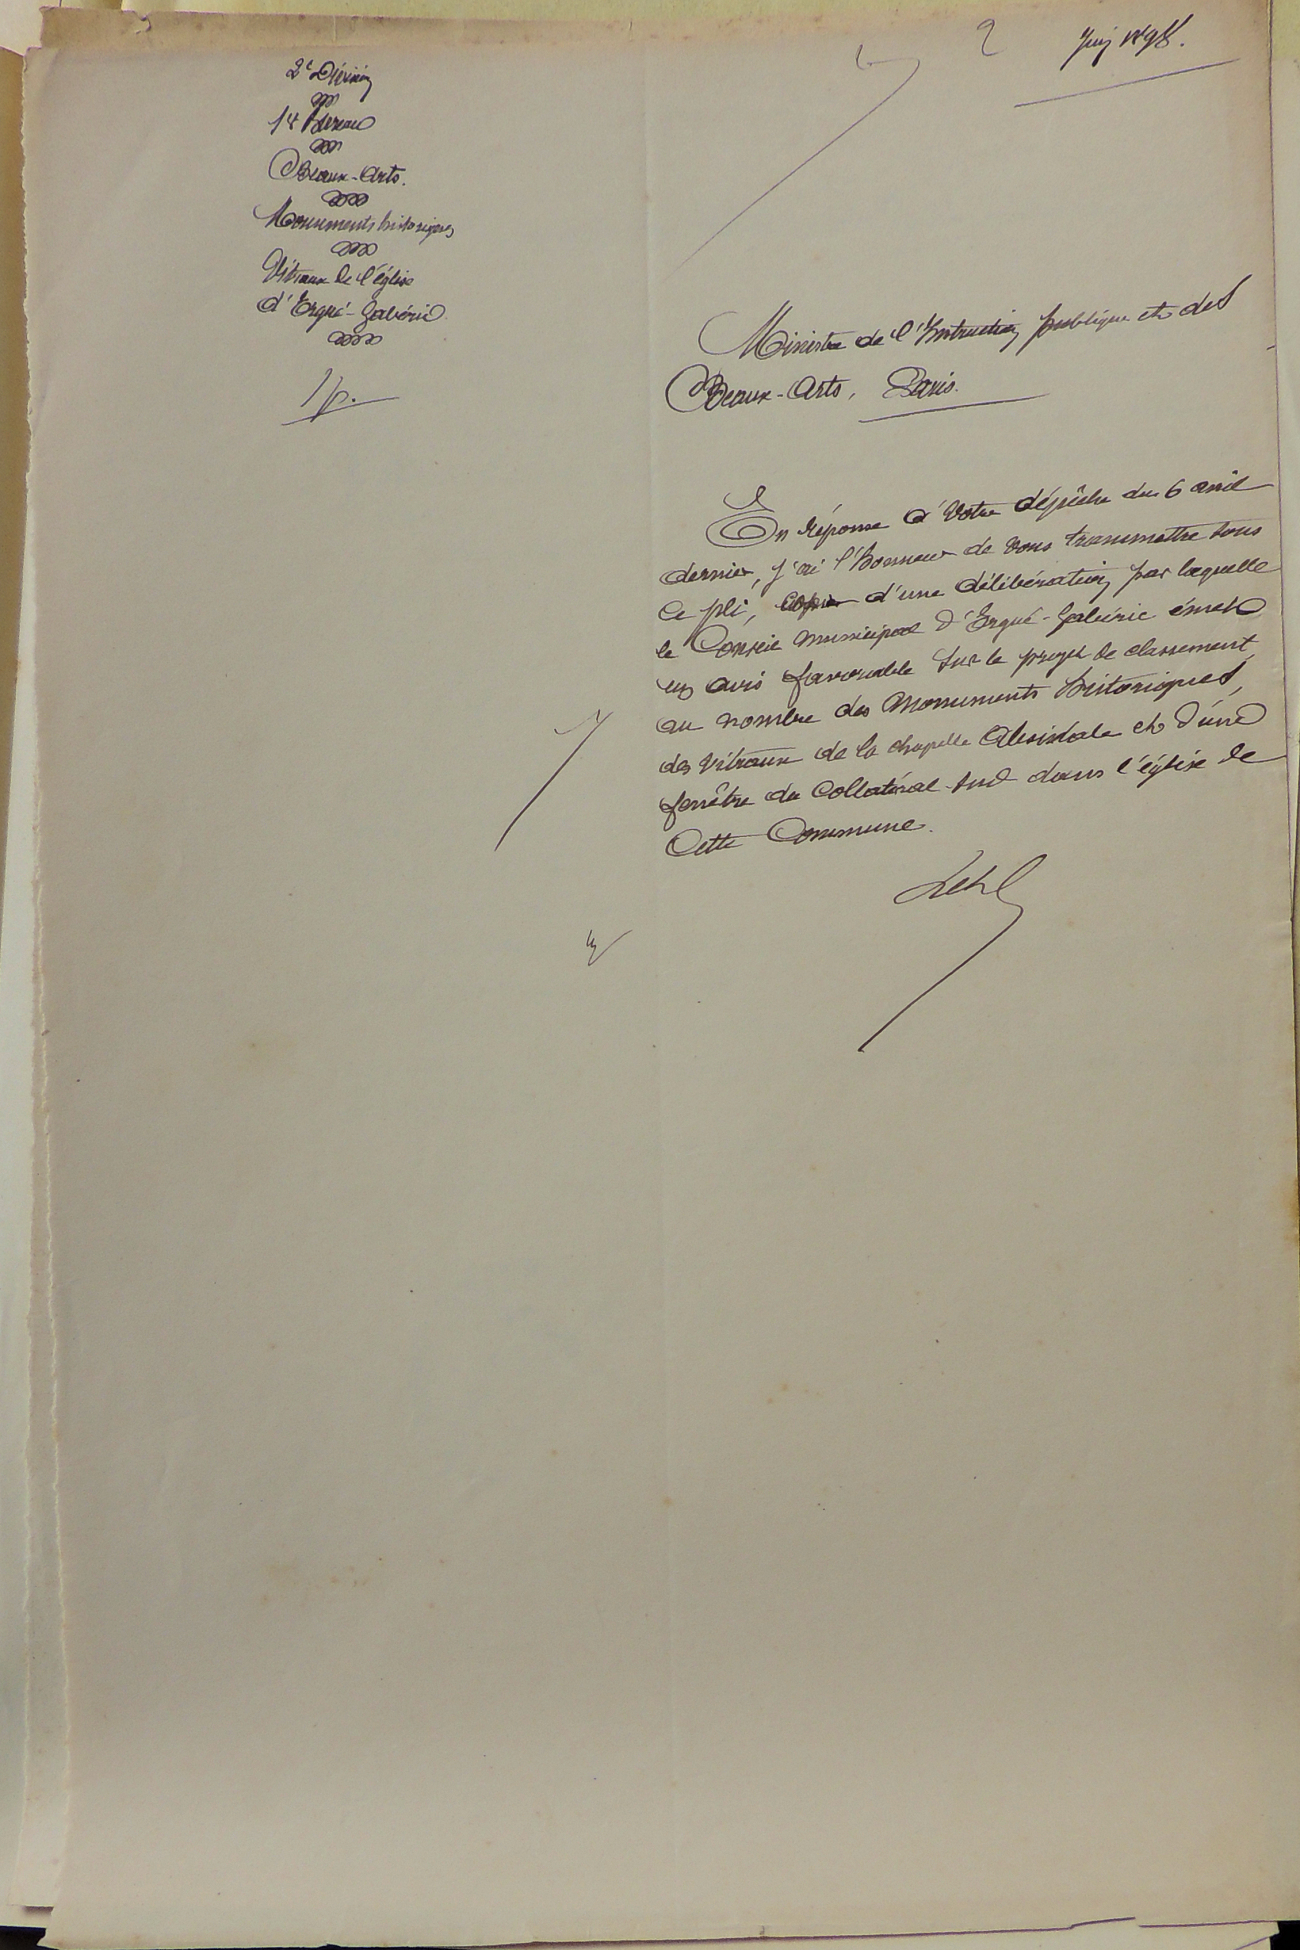 2 Juin 1898.
2e Division
1er Bureau
Beaux-Arts.
Monuments historiques
Vitraux de l'église
d'Ergué-Gabéric
1 p.
Ministre de l'Instruction publique et des
Beaux-Arts, Paris.
En réponse à votre dépêche du 6 avril
dernier, j'ai l'honneur de vous transmettre sous
ce pli, copie d'une délibération par laquelle
le Conseil municipal d'Ergué-Gabéric émet
un avis favorable sur le projet de classement,
au nombre des Monuments historiques,
des vitraux de la chapelle absidale et d'une
fenêtre du collatéral sud dans l'église de
cette Commune.